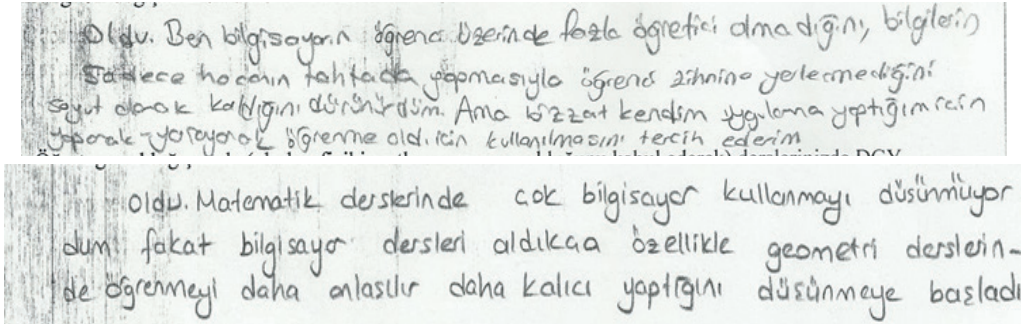 Oldu. Ben bilgisayarın öğrenci üzerinde fazla öğretici olmadığını, bilgilerin
sadece hocanın tahtada yapmasıyla öğrenci zihnine yerleşmediğini
soyut olarak kaldığını düşünürdüm. Ama bizzat kendim uygulama yaptığım için
yaparak-yaşayarak öğrenme old. için kullanılmasını tercih ederim
Oldu. Matematik derslerinde çok bilgisayar kullanmayı düşünmüyor
dum fakat bilgisayar dersleri aldıkça özellikle geometri derslerin-
de öğrenmeyi daha anlaşılır daha kalıcı yaptığını düşünmeye başladı